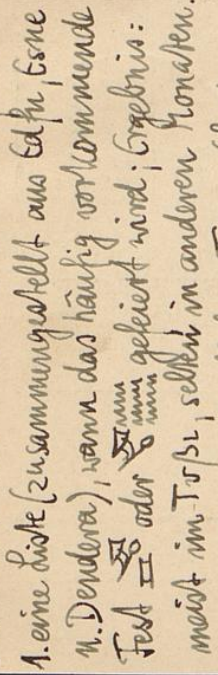 1. eine Liste (zusammengestellt aus Edfu, Esne
u. Dendera), wann das häufig vorkommende
Fest oder gefeiert wird; Ergebnis:
meist im Tybi, selten in anderen Monaten.